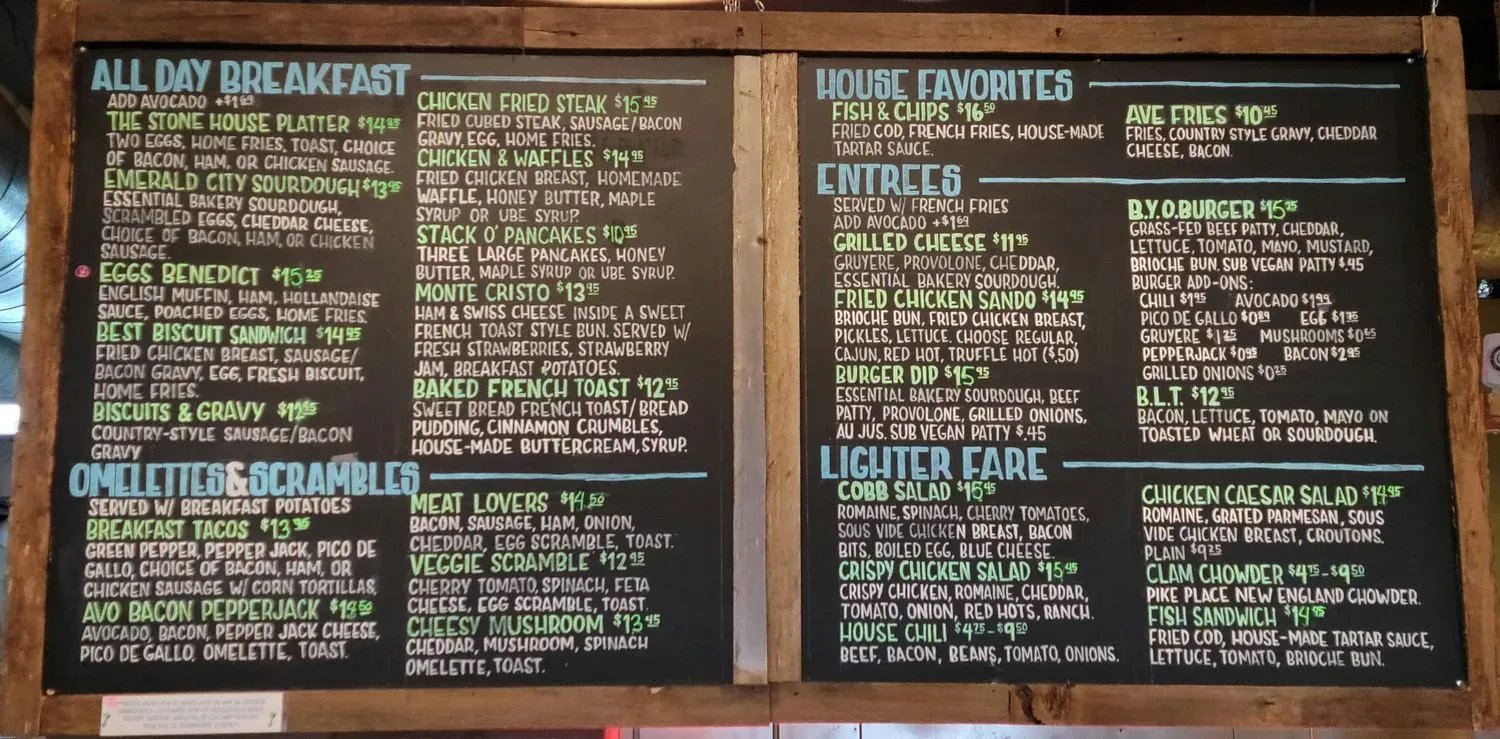 ALL DAY BREAKFAST
ADD AVOCADO +$1.69
THE STONE HOUSE PLATTER
TWO EGGS, HOME FRIES, TOAST, CHOICE
OF BACON, HAM, OR CHICKEN SAUSAGE.
EMERALD CITY SOURDOUGH $13.95
ESSENTIAL BAKERY SOURDOUGH,
SCRAMBLED EGGS, CHEDDAR CHEESE,
CHOICE OF BACON, HAM, OR CHICKEN
SAUSAGE.
EGGS BENEDICT $15.25
ENGLISH MUFFIN, HAM, HOLLANDAISE
SAUCE, POACHED EGGS, HOME FRIES.
BEST BISCUIT SANDWICH $14.95
FRIED CHICKEN BREAST, SAUSAGE/
BACON GRAVY, EGG, FRESH BISCUIT,
HOME FRIES.
BISCUITS & GRAVY $12.95
COUNTRY-STYLE SAUSAGE/BACON
GRAVY
CHICKEN FRIED STEAK $15.95
FRIED CUBED STEAK, SAUSAGE/BACON
GRAVY, EGG, HOME FRIES.
CHICKEN & WAFFLES $14.95
FRIED CHICKEN BREAST, HOMEMADE
WAFFLE, HONEY BUTTER, MAPLE
SYRUP OR UBE SYRUP.
STACK O' PANCAKES $10.95
THREE LARGE PANCAKES, HONEY
BUTTER, MAPLE SYRUP OR UBE SYRUP.
MONTE CRISTO $13.95
HAM & SWISS CHEESE INSIDE A SWEET
FRENCH TOAST STYLE BUN. SERVED W/
FRESH STRAWBERRIES, STRAWBERRY
JAM, BREAKFAST POTATOES.
BAKED FRENCH TOAST $12.95
SWEET BREAD FRENCH TOAST/BREAD
PUDDING, CINNAMON CRUMBLES,
HOUSE-MADE BUTTERCREAM, SYRUP.
OMELETTES & SCRAMBLES
SERVED W/ BREAKFAST POTATOES
BREAKFAST TACOS
GREEN PEPPER, PEPPER JACK, PICO DE
GALLO, CHOICE OF BACON, HAM, OR
CHICKEN SAUSAGE W/ CORN TORTILLAS.
AVO BACON PEPPERJACK $14.50
AVOCADO, BACON, PEPPER JACK CHEESE,
PICO DE GALLO, OMELETTE, TOAST.
MEAT LOVERS $14.50
BACON, SAUSAGE, HAM, ONION,
CHEDDAR, EGG SCRAMBLE, TOAST.
VEGGIE SCRAMBLE $12.95
CHERRY TOMATO, SPINACH, FETA
CHEESE, EGG SCRAMBLE, TOAST.
CHEESY MUSHROOM $13.45
CHEDDAR, MUSHROOM, SPINACH
OMELETTE, TOAST.
HOUSE FAVORITES
FISH & CHIPS $16.50
FRIED COD, FRENCH FRIES, HOUSE-MADE
TARTAR SAUCE.
AVE FRIES $10.45
FRIES, COUNTRY STYLE GRAVY, CHEDDAR
CHEESE, BACON.
ENTREES
SERVED W/ FRENCH FRIES
ADD AVOCADO +$1.69
GRILLED CHEESE $11.95
GRUYERE, PROVOLONE, CHEDDAR,
ESSENTIAL BAKERY SOURDOUGH.
FRIED CHICKEN SANDO $14.95
BRIOCHE BUN, FRIED CHICKEN BREAST,
PICKLES, LETTUCE. CHOOSE REGULAR,
CAJUN, RED HOT, TRUFFLE HOT ($.50)
BURGER DIP $15.95
ESSENTIAL BAKERY SOURDOUGH, BEEF
PATTY, PROVOLONE, GRILLED ONIONS,
AU JUS. SUB VEGAN PATTY $.45
B.Y.O.BURGER $15.25
GRASS-FED BEEF PATTY, CHEDDAR,
LETTUCE, TOMATO, MAYO, MUSTARD,
BRIOCHE BUN. SUB VEGAN PATTY $.45
BURGER ADD-ONS:
CHILI $1.95 AVOCADO $1.99
PICO DE GALLO $0.89 EGG $1.35
GRUYERE $1.25 MUSHROOMS $0.65
PEPPERJACK $0.95 BACON $2.95
GRILLED ONIONS $0.25
B.L.T. $12.95
BACON, LETTUCE, TOMATO, MAYO ON
TOASTED WHEAT OR SOURDOUGH.
LIGHTER FARE
COBB SALAD $15.45
ROMAINE, SPINACH, CHERRY TOMATOES,
SOUS VIDE CHICKEN BREAST, BACON
BITS, BOILED EGG, BLUE CHEESE.
CRISPY CHICKEN SALAD $15.45
CRISPY CHICKEN, ROMAINE, CHEDDAR,
TOMATO, ONION, RED HOTS, RANCH.
HOUSE CHILI $4.75-$9.50
BEEF, BACON, BEANS, TOMATO, ONIONS.
CHICKEN CAESAR SALAD $14.95
ROMAINE, GRATED PARMESAN, SOUS
VIDE CHICKEN BREAST, CROUTONS.
PLAIN $9.25
CLAM CHOWDER $4.75-$9.50
PIKE PLACE NEW ENGLAND CHOWDER.
FISH SANDWICH $14.75
FRIED COD, HOUSE-MADE TARTAR SAUCE,
LETTUCE, TOMATO, BRIOCHE BUN.